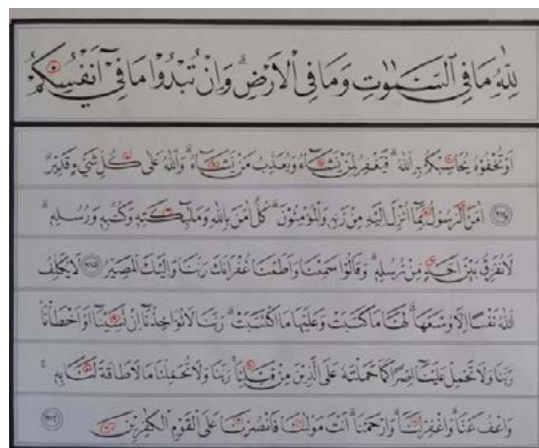 لِلّٰهِ مَا فِي السَّمٰوَاتِ وَمَا فِي الْاَرْضِ وَاِنْ تُبْدُوا مَا فِٓي اَنْفُسِكُمْ
اَوْ تُخْفُوهُ يُحَاسِبْكُمْ بِهِ اللّٰهُ فَيَغْفِرُ لِمَنْ يَشَٓاءُ وَيُعَذِّبُ مَنْ يَشَٓاءُ وَاللّٰهُ عَلٰى كُلِّ شَيْءٍ قَدِيرٌ
اٰمَنَ الرَّسُولُ بِمَٓا اُنْزِلَ اِلَيْهِ مِنْ رَبِّهِ وَالْمُؤْمِنُونَ كُلٌّ اٰمَنَ بِاللّٰهِ وَمَلٰٓئِكَتِهِ وَكُتُبِهِ وَرُسُلِهِ
لَا نُفَرِّقُ بَيْنَ اَحَدٍ مِنْ رُسُلِهِ وَقَالُوا سَمِعْنَا وَاَطَعْنَا غُفْرَانَكَ رَبَّنَا وَاِلَيْكَ الْمَصِيرُ ٢٨٥ لَا يُكَلِّفُ
اللّٰهُ نَفْسًا اِلَّا وُسْعَهَا لَهَا مَا كَسَبَتْ وَعَلَيْهَا مَا اكْتَسَبَتْ رَبَّنَا لَا تُؤَاخِذْنَٓا اِنْ نَسِينَٓا اَوْ اَخْطَأْنَا
رَبَّنَا وَلَا تَحْمِلْ عَلَيْنَٓا اِصْرًا كَمَا حَمَلْتَهُ عَلَى الَّذِينَ مِنْ قَبْلِنَا رَبَّنَا وَلَا تُحَمِّلْنَا مَا لَا طَاقَةَ لَنَا بِهِ
وَاعْفُ عَنَّا وَاغْفِرْ لَنَا وَارْحَمْنَا اَنْتَ مَوْلٰينَا فَانْصُرْنَا عَلَى الْقَوْمِ الْكَافِرِينَ